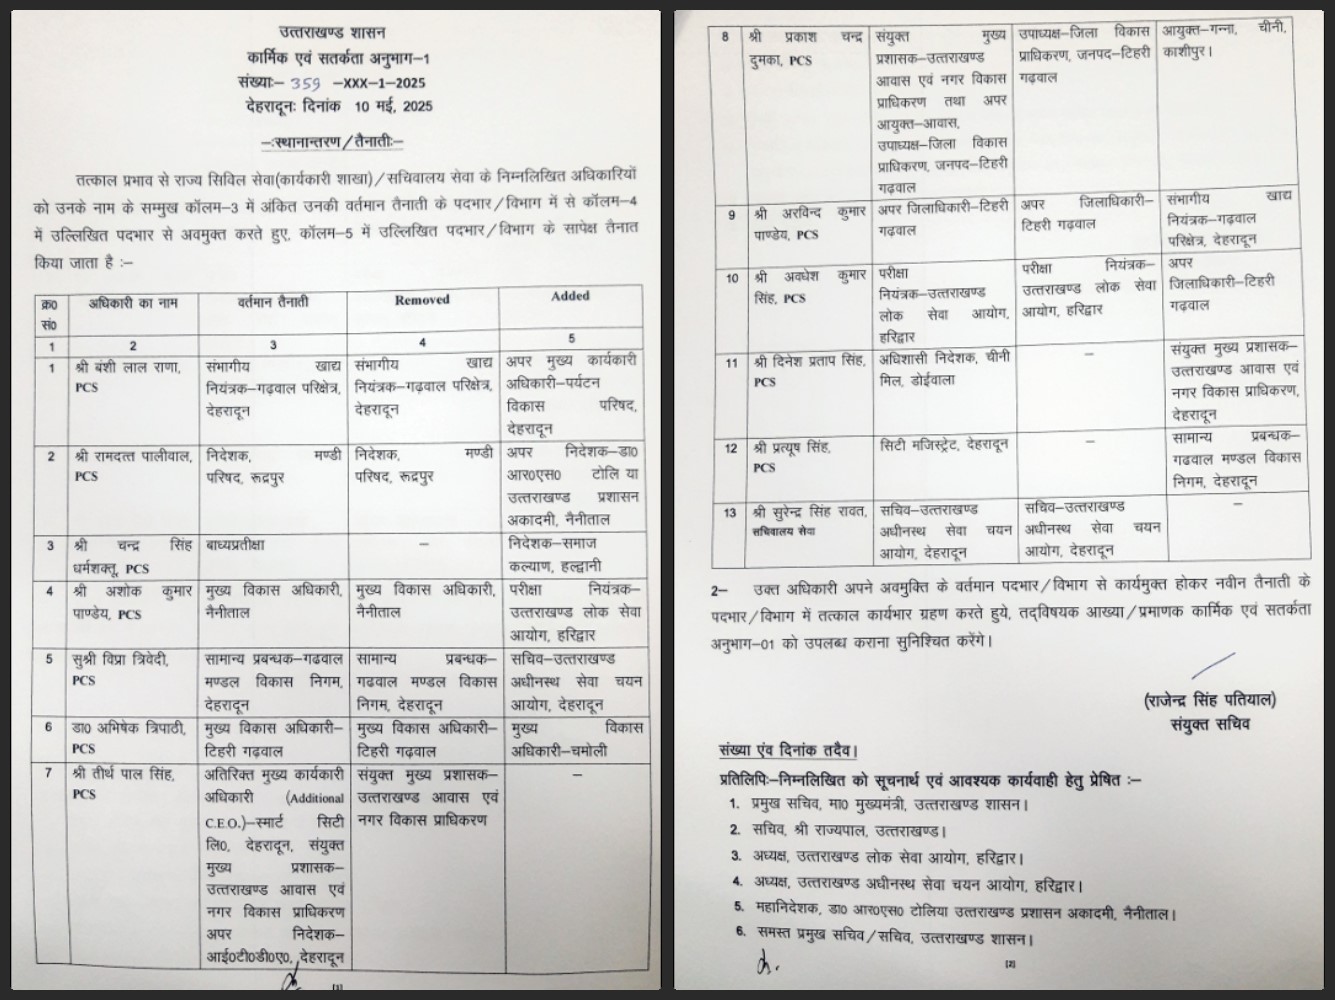 उत्तराखण्ड शासन
कार्मिक एवं सतर्कता अनुभाग–1
संख्याः– 359 –XXX–1–2025
देहरादूनः दिनांक 10 मई, 2025
–:स्थानान्तरण/तैनातीः–
तत्काल प्रभाव से राज्य सिविल सेवा(कार्यकारी शाखा)/सचिवालय सेवा के निम्नलिखित अधिकारियों
को उनके नाम के सम्मुख कॉलम–3 में अंकित उनकी वर्तमान तैनाती के पदभार/विभाग में से कॉलम–4
में उल्लिखित पदभार से अवमुक्त करते हुए, कॉलम–5 में उल्लिखित पदभार/विभाग के सापेक्ष तैनात
किया जाता है :–
क्र0 सं0 | अधिकारी का नाम | वर्तमान तैनाती | Removed | Added
1 | 2 | 3 | 4 | 5
1 | श्री बंशी लाल राणा, PCS | संभागीय खाद्य नियंत्रक–गढ़वाल परिक्षेत्र, देहरादून | संभागीय खाद्य नियंत्रक–गढ़वाल परिक्षेत्र, देहरादून | अपर मुख्य कार्यकारी अधिकारी–पर्यटन विकास परिषद, देहरादून
2 | श्री रामदत्त पालीवाल, PCS | निदेशक, मण्डी परिषद, रूद्रपुर | निदेशक, मण्डी परिषद, रूद्रपुर | अपर निदेशक–डा0 आर0एस0 टोलि या उत्तराखण्ड प्रशासन अकादमी, नैनीताल
3 | श्री चन्द्र सिंह धर्मशक्तू, PCS | बाध्यप्रतीक्षा | – | निदेशक–समाज कल्याण, हल्द्वानी
4 | श्री अशोक कुमार पाण्डेय, PCS | मुख्य विकास अधिकारी, नैनीताल | मुख्य विकास अधिकारी, नैनीताल | परीक्षा नियंत्रक–उत्तराखण्ड लोक सेवा आयोग, हरिद्वार
5 | सुश्री विप्रा त्रिवेदी, PCS | सामान्य प्रबन्धक–गढवाल मण्डल विकास निगम, देहरादून | सामान्य प्रबन्धक–गढवाल मण्डल विकास निगम, देहरादून | सचिव–उत्तराखण्ड अधीनस्थ सेवा चयन आयोग, देहरादून
6 | डा0 अभिषेक त्रिपाठी, PCS | मुख्य विकास अधिकारी–टिहरी गढ़वाल | मुख्य विकास अधिकारी–टिहरी गढ़वाल | मुख्य विकास अधिकारी–चमोली
7 | श्री तीर्थ पाल सिंह, PCS | अतिरिक्त मुख्य कार्यकारी अधिकारी (Additional C.E.O.)–स्मार्ट सिटी लि0, देहरादून, संयुक्त मुख्य प्रशासक–उत्तराखण्ड आवास एवं नगर विकास प्राधिकरण अपर निदेशक–आई0टी0डी0ए0, देहरादून | संयुक्त मुख्य प्रशासक–उत्तराखण्ड आवास एवं नगर विकास प्राधिकरण | –
[1]
8 | श्री प्रकाश चन्द्र दुमका, PCS | संयुक्त मुख्य प्रशासक–उत्तराखण्ड आवास एवं नगर विकास प्राधिकरण तथा अपर आयुक्त–आवास, उपाध्यक्ष–जिला विकास प्राधिकरण, जनपद–टिहरी गढ़वाल | उपाध्यक्ष–जिला विकास प्राधिकरण, जनपद–टिहरी गढ़वाल | आयुक्त–गन्ना, चीनी, काशीपुर।
9 | श्री अरविन्द कुमार पाण्डेय, PCS | अपर जिलाधिकारी–टिहरी गढ़वाल | अपर जिलाधिकारी–टिहरी गढ़वाल | संभागीय खाद्य नियंत्रक–गढ़वाल परिक्षेत्र, देहरादून
10 | श्री अवधेश कुमार सिंह, PCS | परीक्षा नियंत्रक–उत्तराखण्ड लोक सेवा आयोग, हरिद्वार | परीक्षा नियंत्रक–उत्तराखण्ड लोक सेवा आयोग, हरिद्वार | अपर जिलाधिकारी–टिहरी गढ़वाल
11 | श्री दिनेश प्रताप सिंह, PCS | अधिशासी निदेशक, चीनी मिल, डोईवाला | – | संयुक्त मुख्य प्रशासक–उत्तराखण्ड आवास एवं नगर विकास प्राधिकरण, देहरादून
12 | श्री प्रत्यूष सिंह, PCS | सिटी मजिस्ट्रेट, देहरादून | – | सामान्य प्रबन्धक–गढवाल मण्डल विकास निगम, देहरादून
13 | श्री सुरेन्द्र सिंह रावत, सचिवालय सेवा | सचिव–उत्तराखण्ड अधीनस्थ सेवा चयन आयोग, देहरादून | सचिव–उत्तराखण्ड अधीनस्थ सेवा चयन आयोग, देहरादून | –
2– उक्त अधिकारी अपने अवमुक्ति के वर्तमान पदभार/विभाग से कार्यमुक्त होकर नवीन तैनाती के
पदभार/विभाग में तत्काल कार्यभार ग्रहण करते हुये, तद्विषयक आख्या/प्रमाणक कार्मिक एवं सतर्कता
अनुभाग–01 को उपलब्ध कराना सुनिश्चित करेंगे।
(राजेन्द्र सिंह पतियाल)
संयुक्त सचिव
संख्या एंव दिनांक तदैव।
प्रतिलिपिः–निम्नलिखित को सूचनार्थ एवं आवश्यक कार्यवाही हेतु प्रेषित :–
1. प्रमुख सचिव, मा0 मुख्यमंत्री, उत्तराखण्ड शासन।
2. सचिव, श्री राज्यपाल, उत्तराखण्ड।
3. अध्यक्ष, उत्तराखण्ड लोक सेवा आयोग, हरिद्वार।
4. अध्यक्ष, उत्तराखण्ड अधीनस्थ सेवा चयन आयोग, हरिद्वार।
5. महानिदेशक, डा0 आर0एस0 टोलिया उत्तराखण्ड प्रशासन अकादमी, नैनीताल।
6. समस्त प्रमुख सचिव/सचिव, उत्तराखण्ड शासन।
[2]